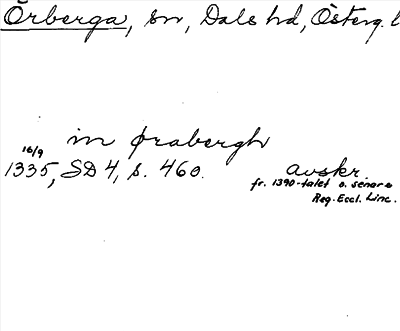 Örberga, sn, Dals hd, Österg. l
in ørabergh
16/9
1335, SD 4, s. 460. avskr.
fr. 1390-talet o. senare
Reg. Eccl. Linc.